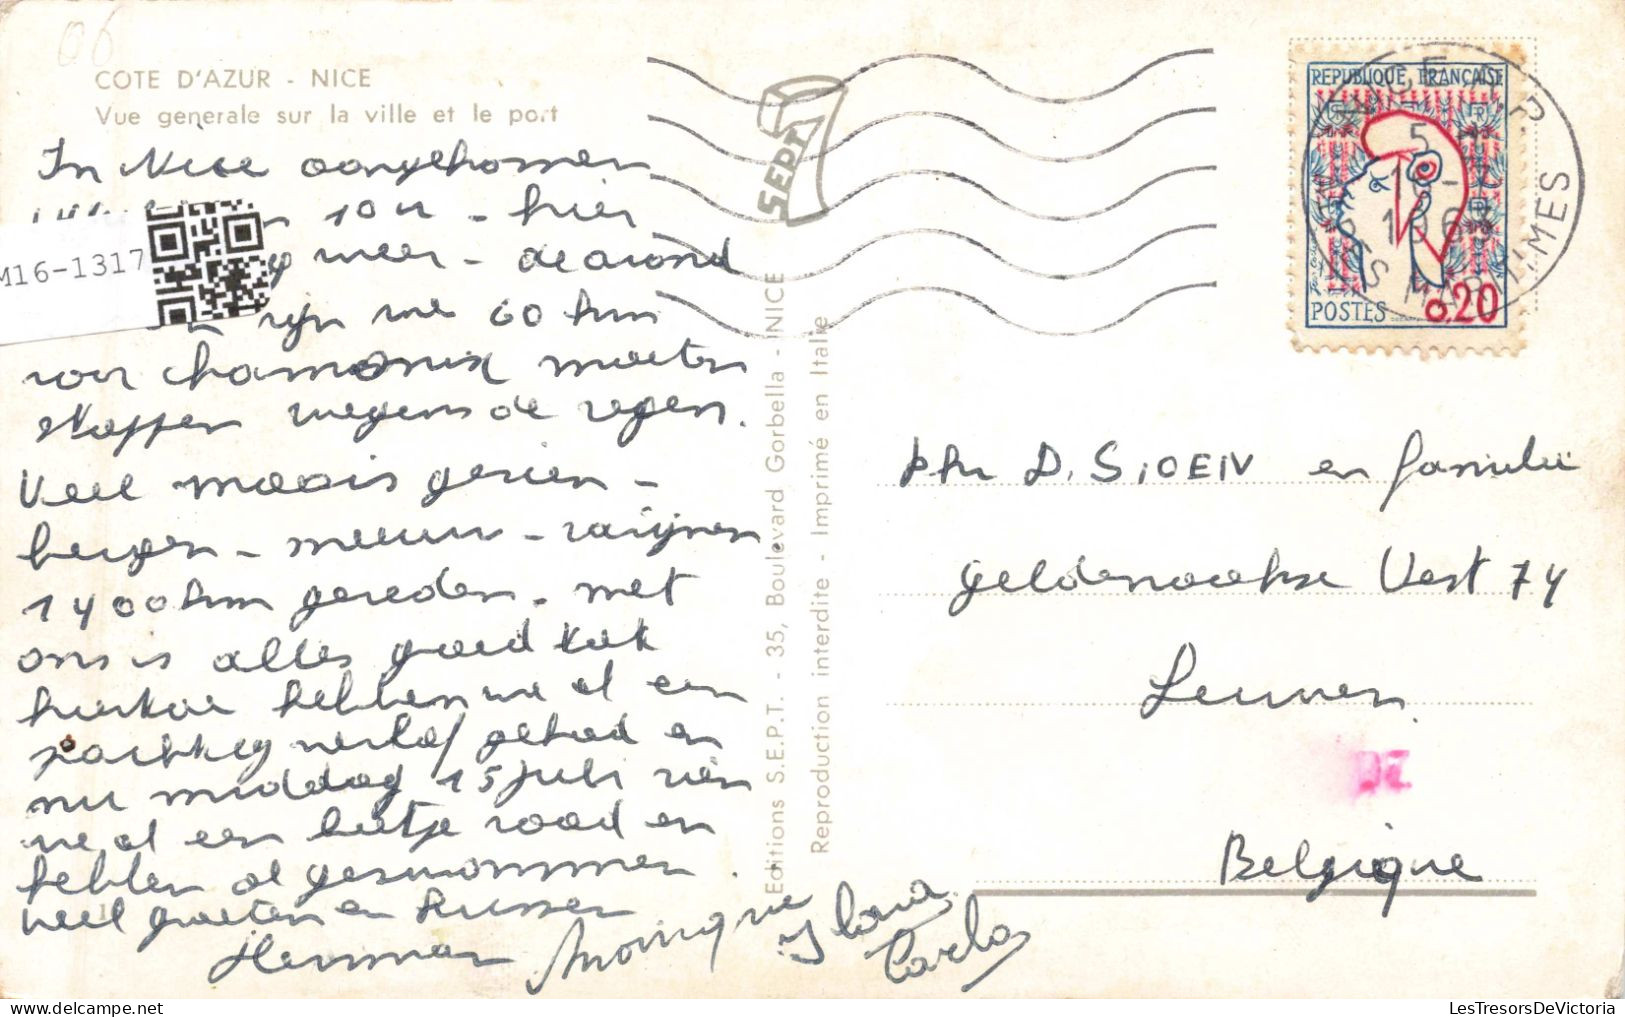 06
COTE D'AZUR - NICE
Vue generale sur la ville et le port
In Nice aangekomen
10 u - hier
meer - de avond
zijn we 60 km
voor Chamonix moeten
stoppen wegens de regen.
Veel moois gezien -
bergen - meeuw - ravijnen
1400 km gereden - met
ons is alles goed tot
hiertoe hebben we al een
prachtig verlof gehad en
nu middag 15 juli zien
we al een beetje rood en
hebben al gezwommen.
veel groeten en kussen
Herman Monique
Carla
M16-1317
7 SEPT
Editions S.E.P.T. - 35, Boulevard Gorbella - NICE
Reproduction interdite - Imprimé en Italie
REPUBLIQUE FRANCAISE
POSTES 0,20
NICE R.P.
ALPES MARITIMES
D. SIOEN en familie
Geldenaakse Vest 74
Leuven.
Belgique
LesTresorsDeVictoria.com